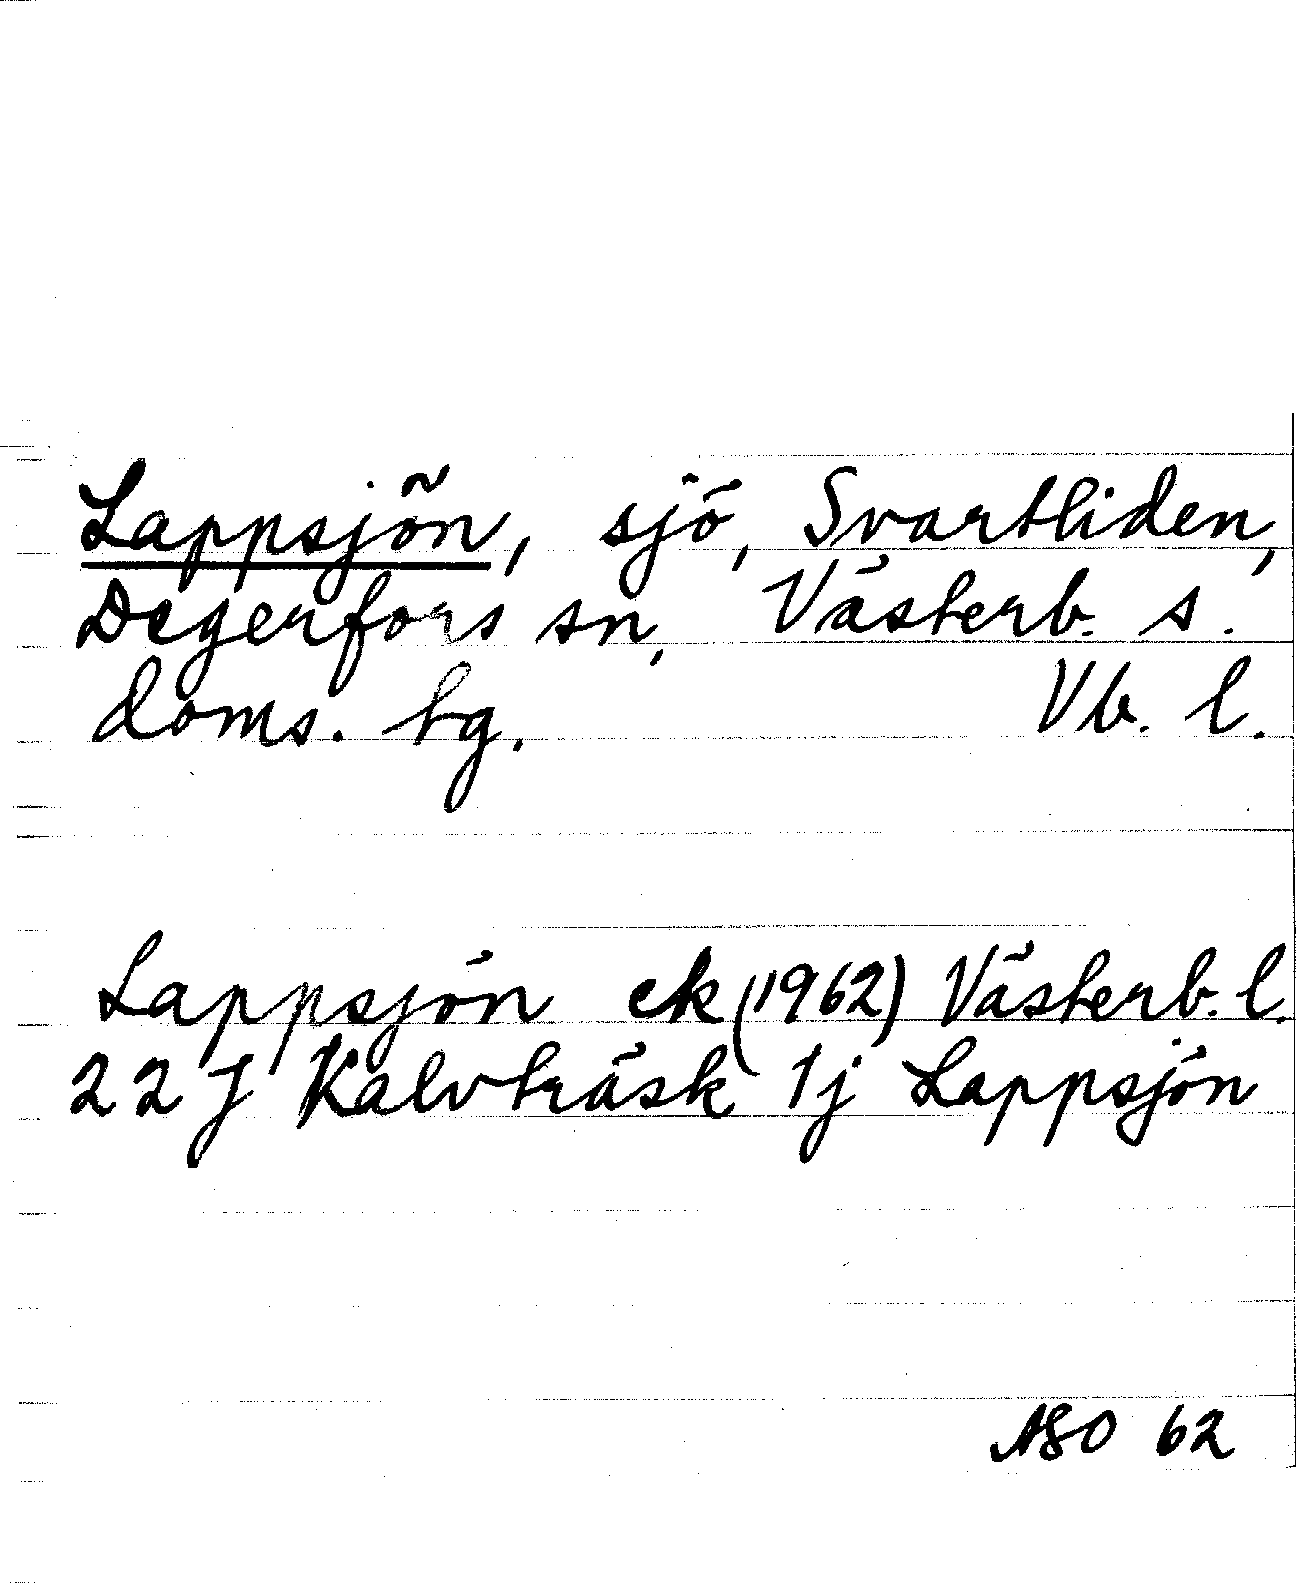 Lappsjön, sjö, Svartliden,
Degerfors sn, Västerb. s.
doms. tg. Vb. l.
Lappsjön ek (1962) Västerb. l.
22 J Kalvträsk 1j Lappsjön
ASO 62